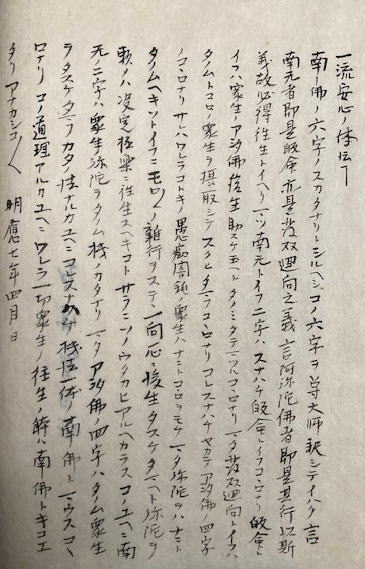 一流安心ノ体云事
南佛ノ六字ノスカタナリトシルヘシコノ六字ヲ导大師釈シテイハク言
南无者即是皈命亦是發願廻向之義言阿弥陀佛者即是其行以斯
義故必得往生トイヘリマツ南无トイフ二字ハスナハチ皈命トイフコヽロナリ皈命ト
イフハ衆生ノ阿弥佛後生助ケ玉ヘトタノミタテマツルコヽロナリマタ發願廻向トイフハ
タノムトコロノ衆生ヲ摂取シテスクヒタマフコヽロナリコレスナハチヤカテ阿弥佛ノ四字
ノコヽロナリサレハワレラコトキノ愚痴闇鈍ノ衆生ハナニトコヽロヲモチマタ弥陀ヲハナニト
タノムヘキソトイフニモロ〳〵ノ雜行ヲステヽ一向一心ニ後生タスケタマヘト弥陀ヲ
タノメハ决定極楽ニ往生スヘキコトサラニソノウタカヒアルヘカラスコノユヘニ南
无ノ二字ハ衆生弥陀ヲタノム機ノカタナリマタ阿弥佛ノ四字ハタノム衆生
ヲタスケタマフカタノ法ナルカユヘニコレスナハチ機法一体ノ南佛トマウスコヽ
ロナリコノ道理アルカユヘニワレラ一切衆生ノ往生ノ体ハ南佛トキコエ
タリアナカシコ〳〵　明應七年四月日